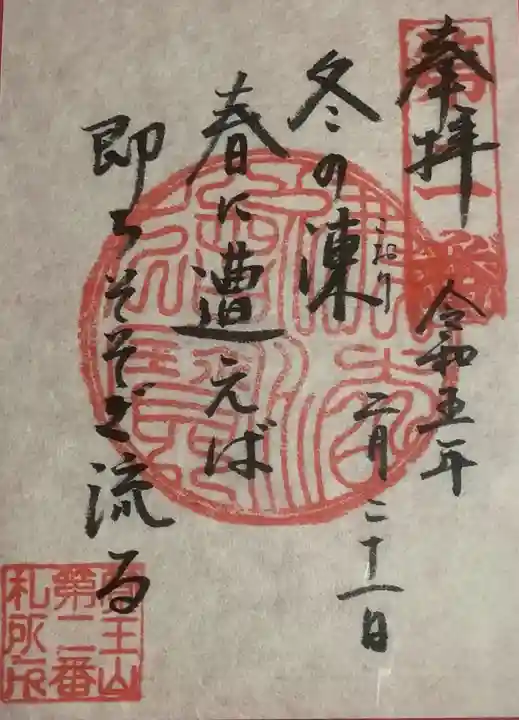 奉拝
令和五年
二月二十一日
冬の凍
こおり
春に遭えば
即ちそそぎ流る
山
第二番
札所